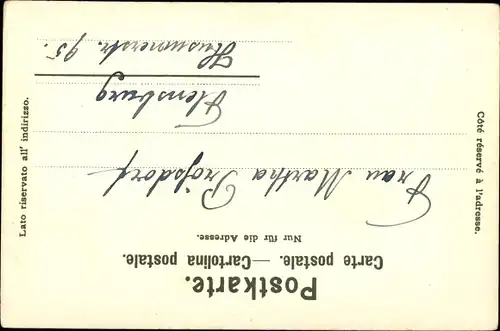 Postkarte.
Carte postale. — Cartolina postale.
Nur für die Adresse.
Côté réservé à l'adresse.
Lato riservato all' indirizzo.
Frau Martha
Flensburg
Husumerstr. 95.